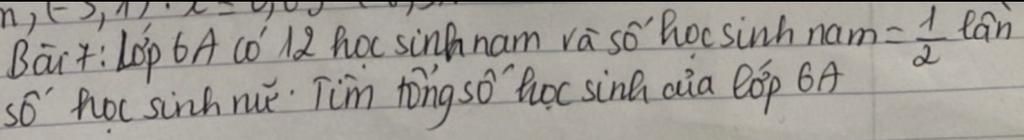 Bài 7: Lớp 6A có 12 học sinh nam và số học sinh nam = 1/2 lần
số học sinh nữ. Tìm tổng số học sinh của lớp 6A